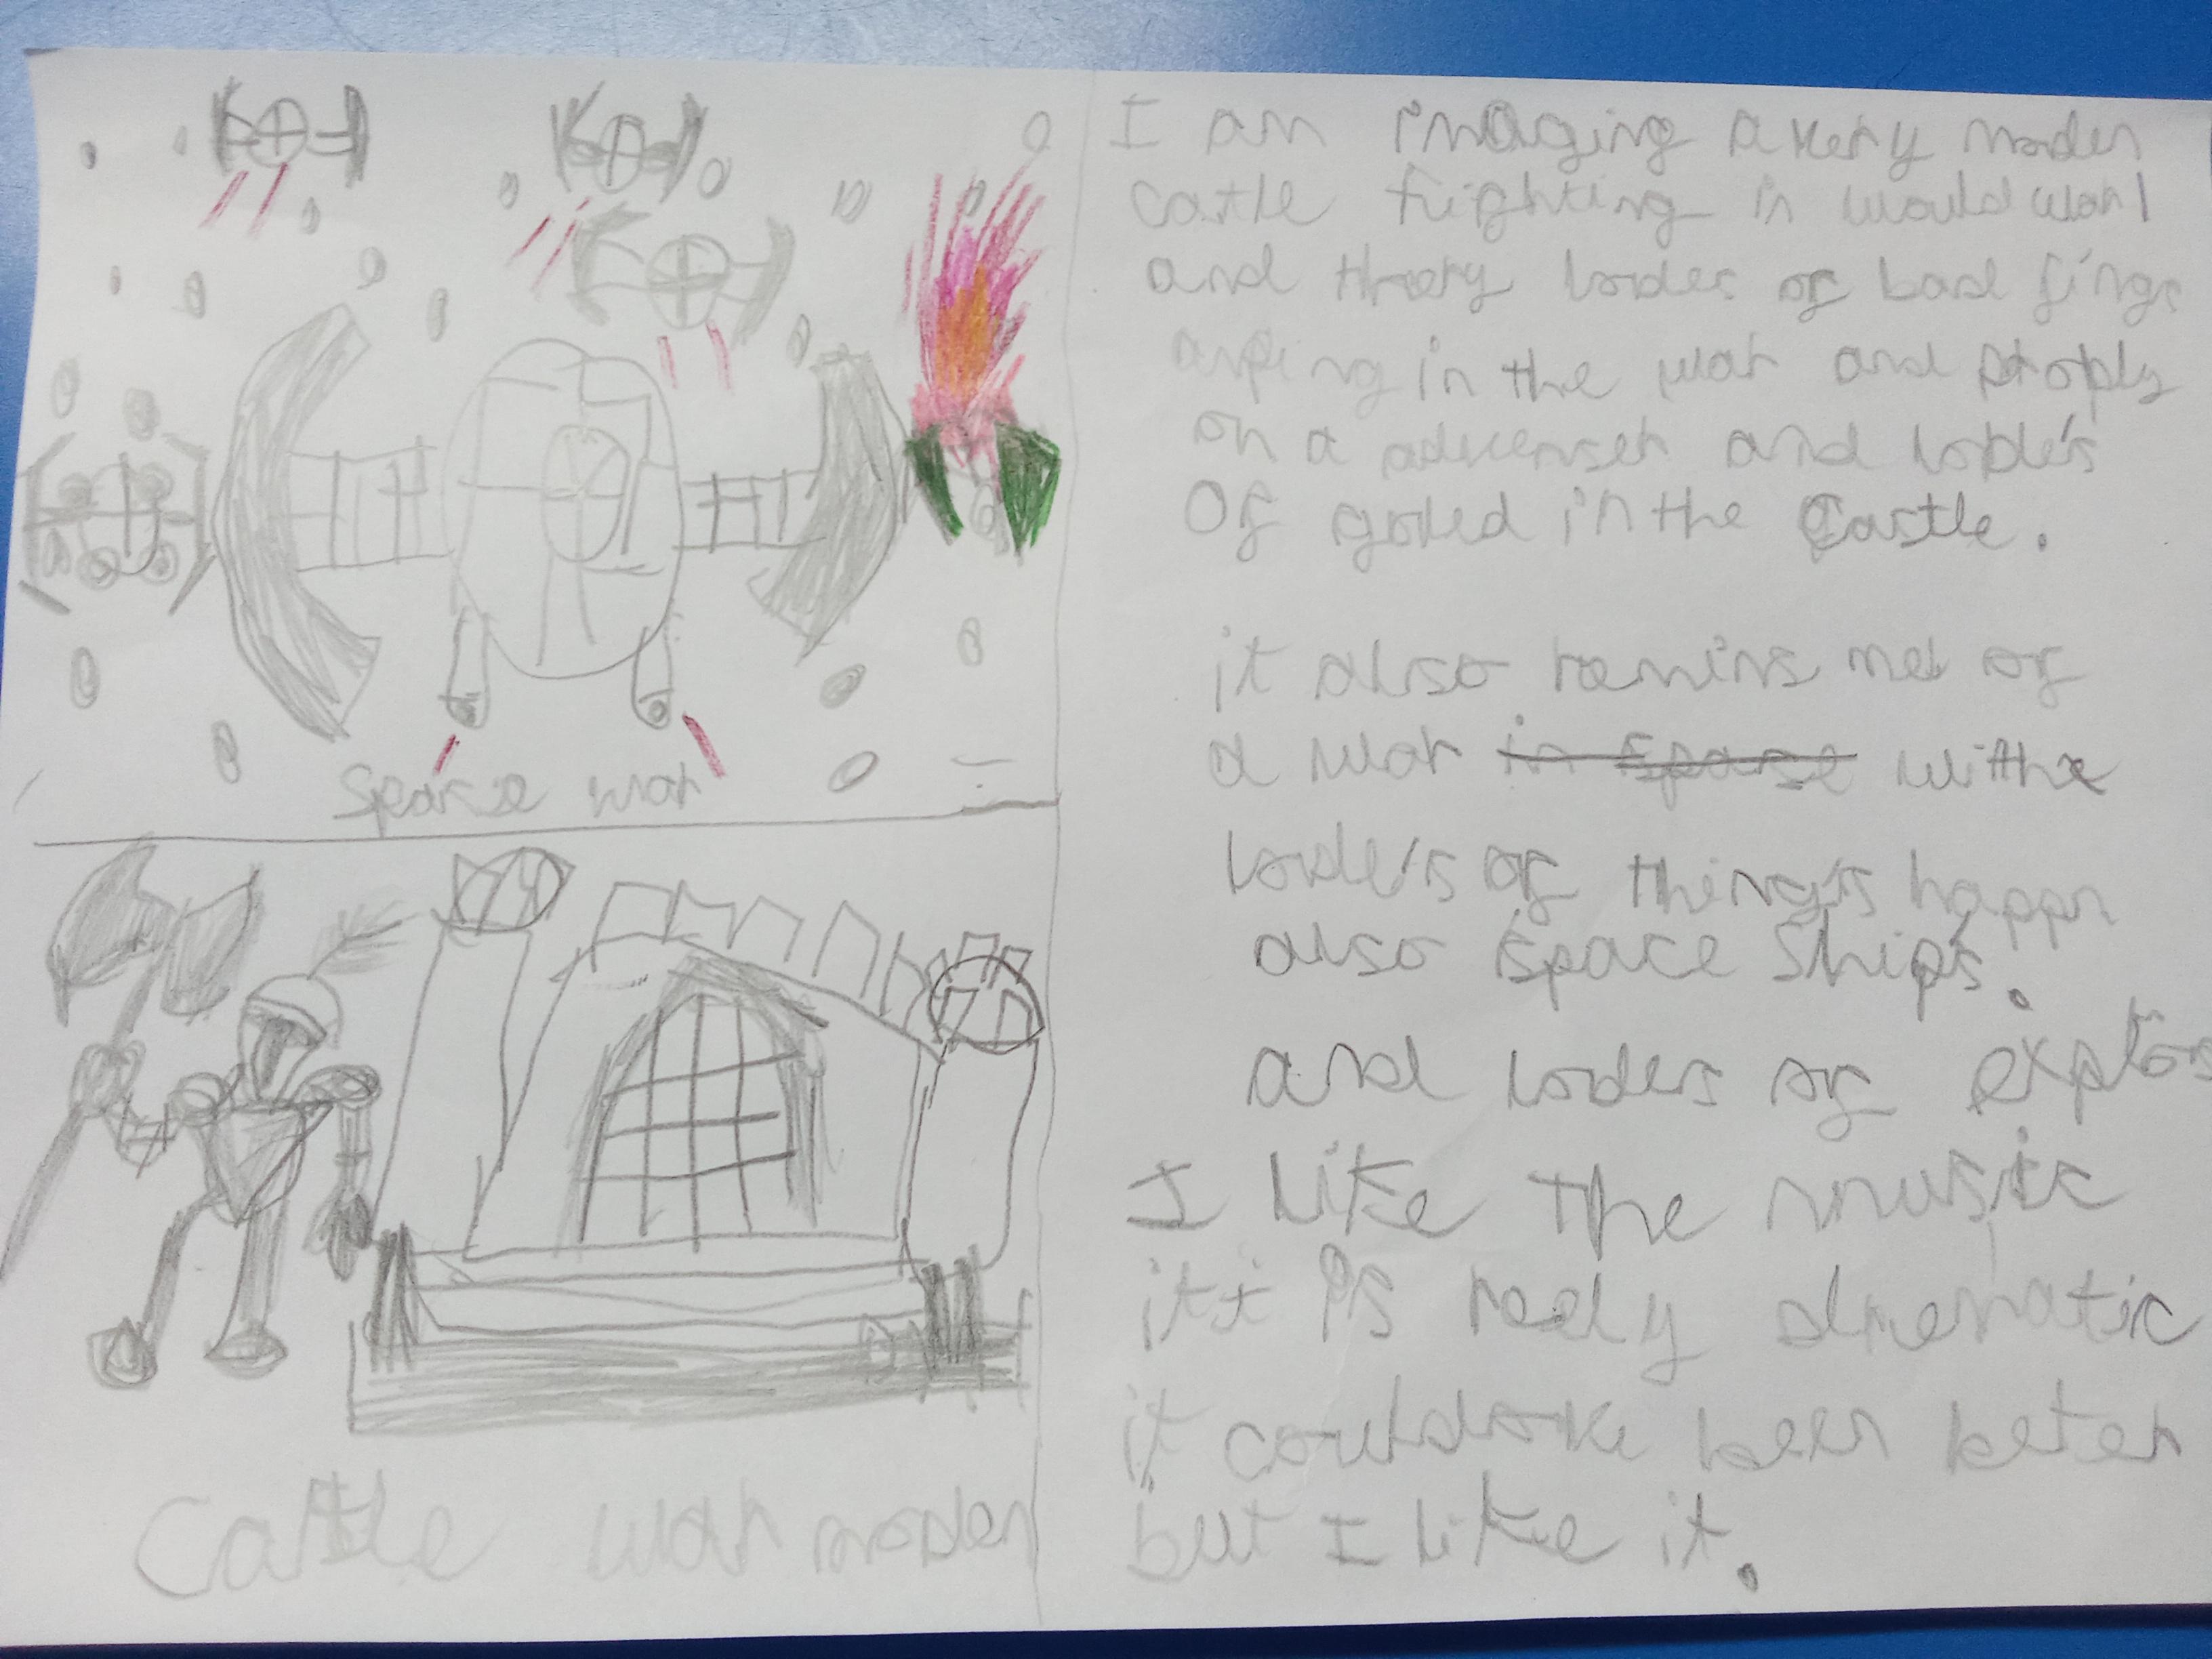 Sparse war
Castle war moden
I am imaging a very moden
castle frighting in would war1
and thory lodes of bad fings
in the war and
on a advenser and lodes
of goled in the Castle.
it also remins me of
a war in sparse with
lode's of things happn
also space ships.
and lodes of explos
I like the music
itt is realy dramatic
it could been beter
but I like it.